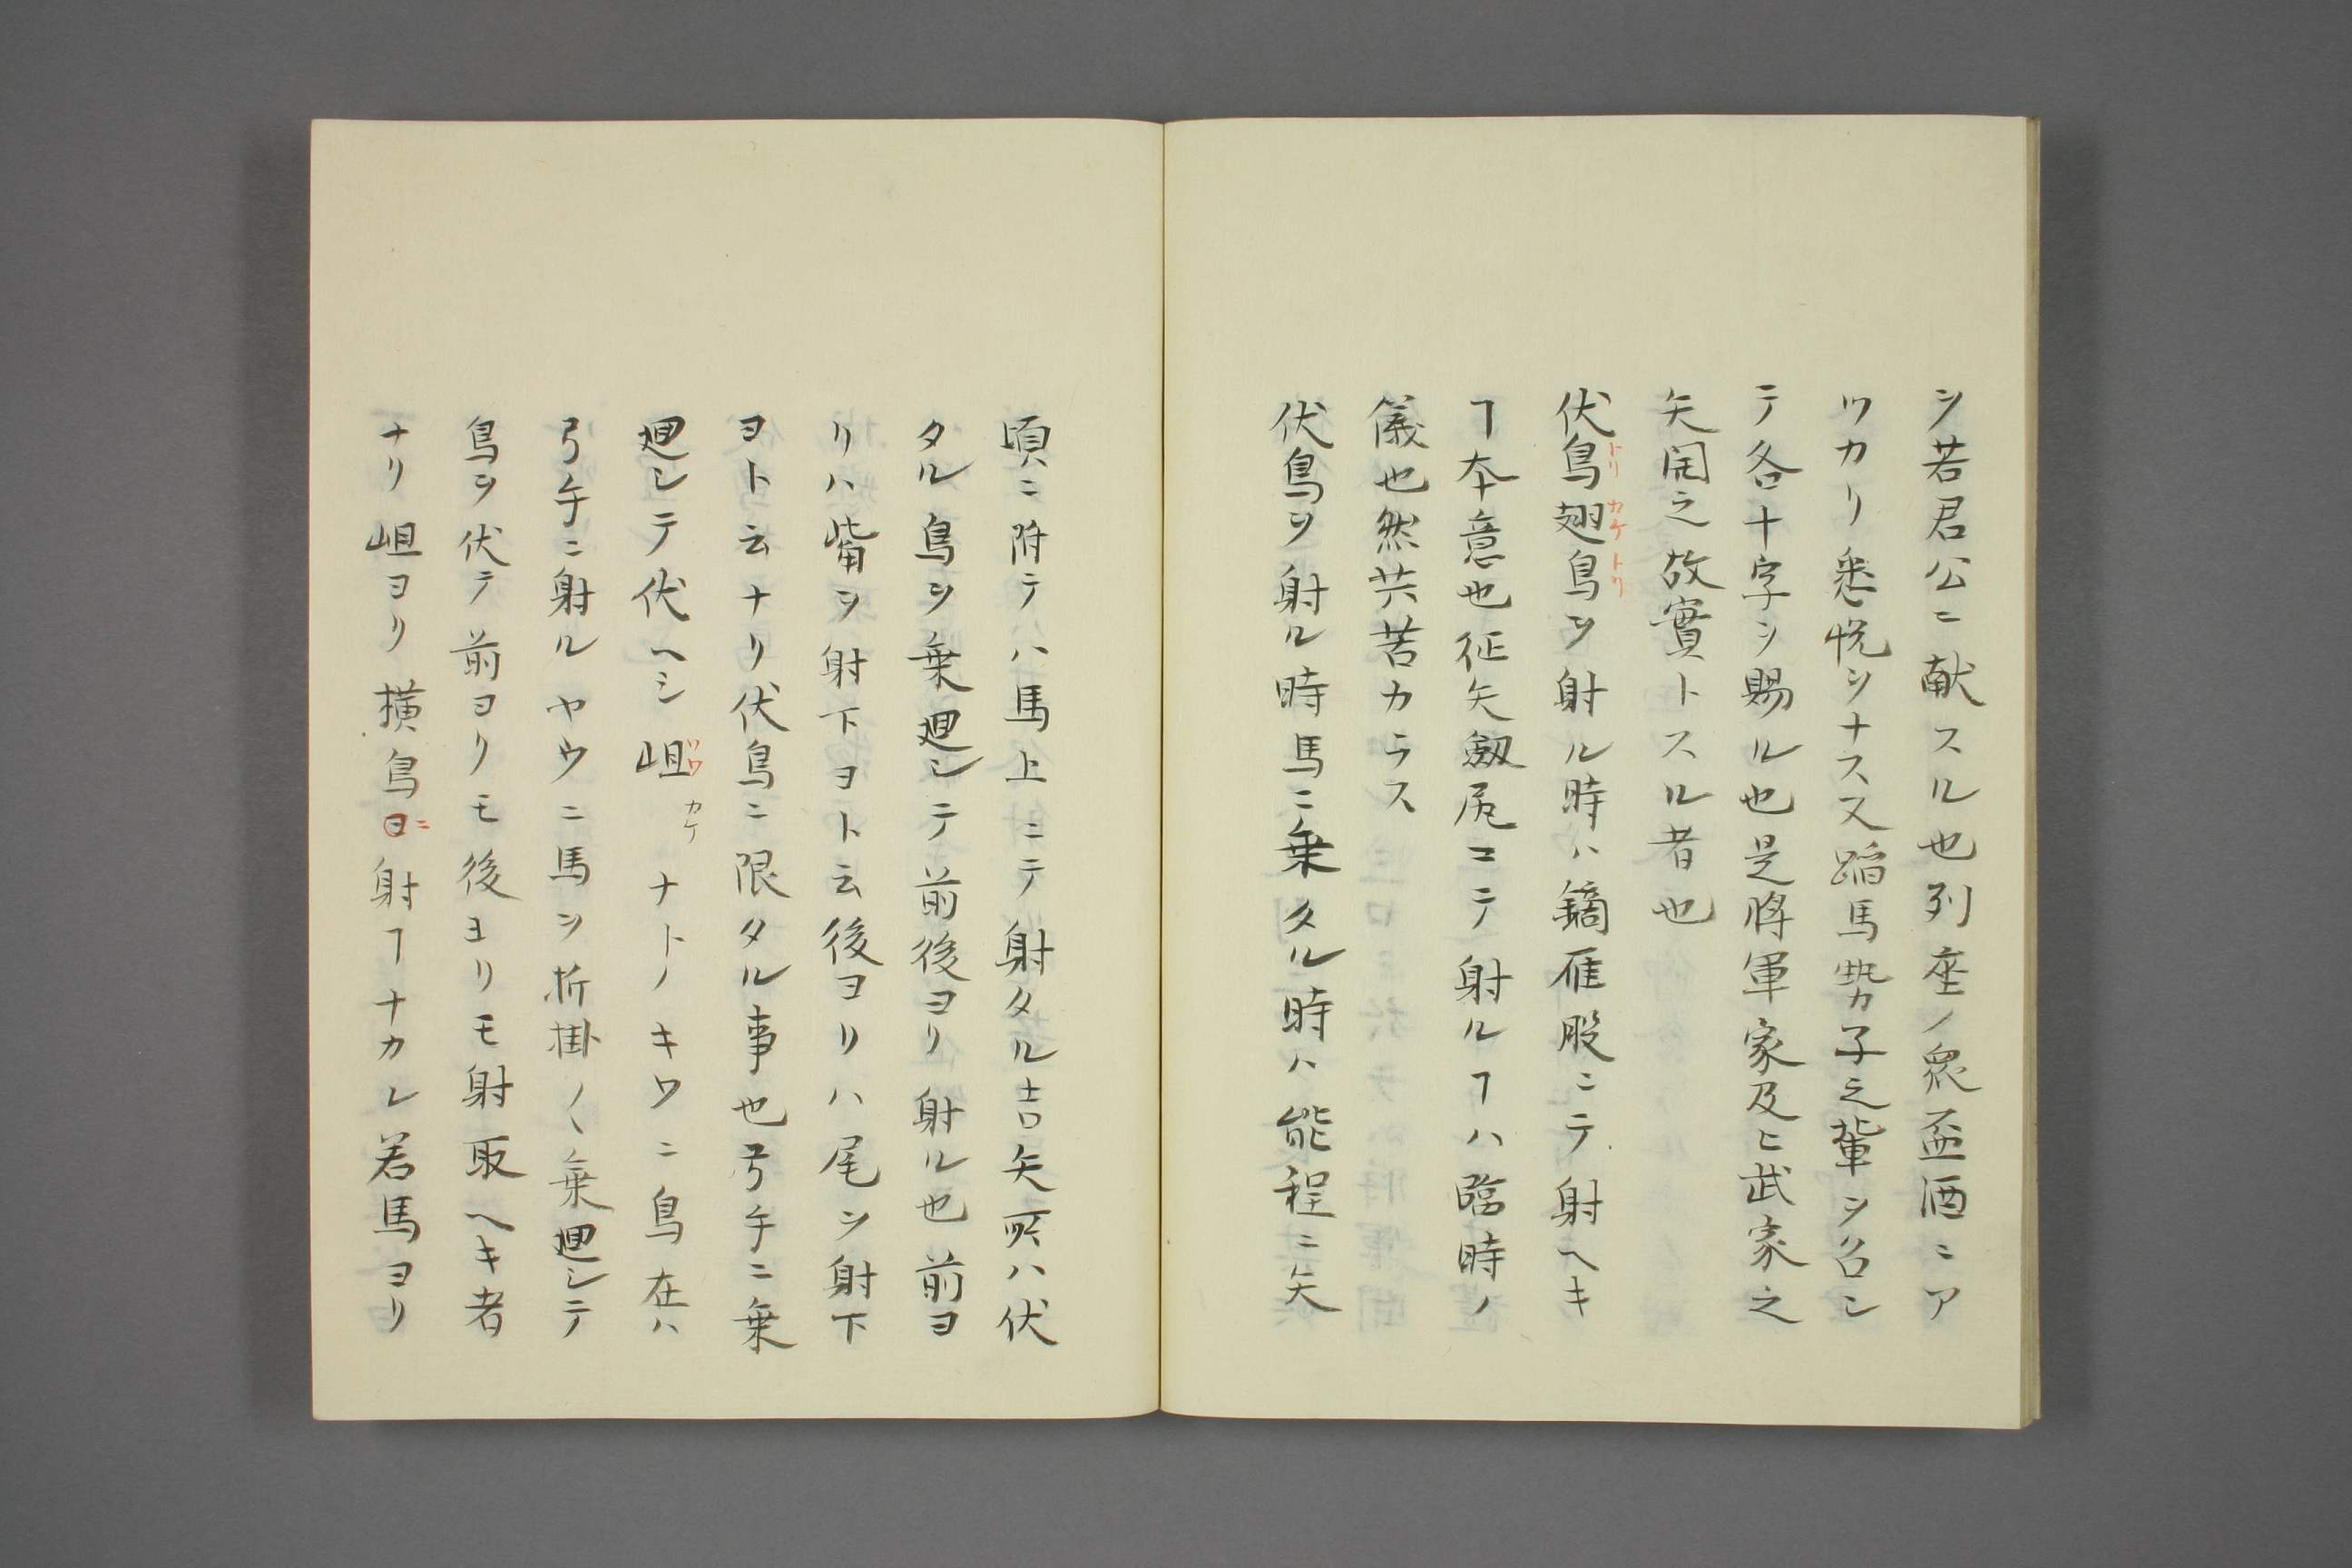 ヲ若君公ニ献スル也列座ノ衆盃酒ニア
ツカリ悉悦ヲナス又蹈馬勢子之輩ヲ召シ
テ各十字ヲ賜ル也是将軍家及ヒ武家之
矢開之故實トスル者也
伏鳥翅鳥ヲ射ル時ハ鏑雁股ニテ射ヘキ
トリ カケ トリ
ヿ本意也征矢劔尻ニテ射ルヿハ臨時ノ
儀也然共苦カラス
伏鳥ヲ射ル時馬ニ乗タル時ハ能程ニ矢
頃ニ附テハ馬上ニテ射タル吉矢所ハ伏
タル鳥ヲ乗廻シテ前後ヨリ射ル也前ヨ
リハ觜ヲ射下ヨト云後ヨリハ尾ヲ射下
ヨト云ナリ伏鳥ニ限タル事也弓手ニ乗
廻シテ伏ヘシ岨カケナトノキワニ鳥在ハ
ソワ
弓手ニ射ルヤウニ馬ヲ折掛〳〵乗廻シテ
鳥ヲ伏テ前ヨリモ後ヨリモ射取ヘキ者
ナリ岨ヨリ横鳥ヨ射ヿナカレ若馬ヨリ
ニ